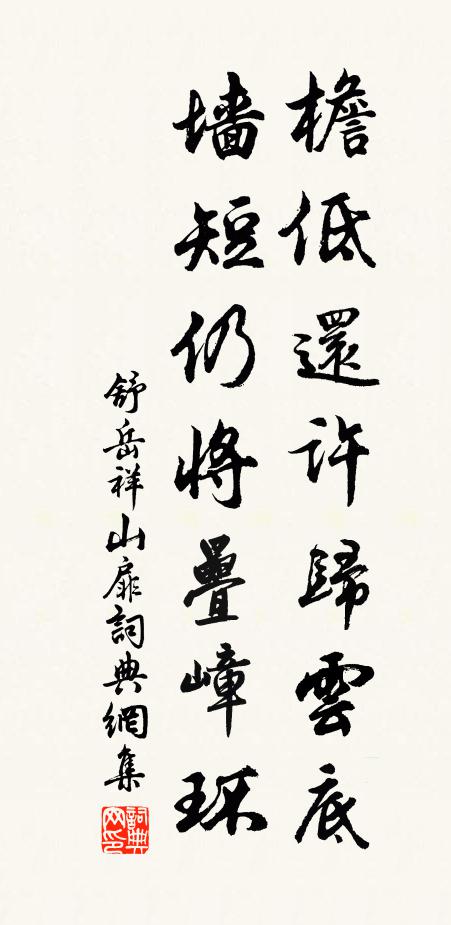 檐低還許歸雲底
墙短仍將疊嶂环
舒岳祥山扉詞典網集
詞典网印